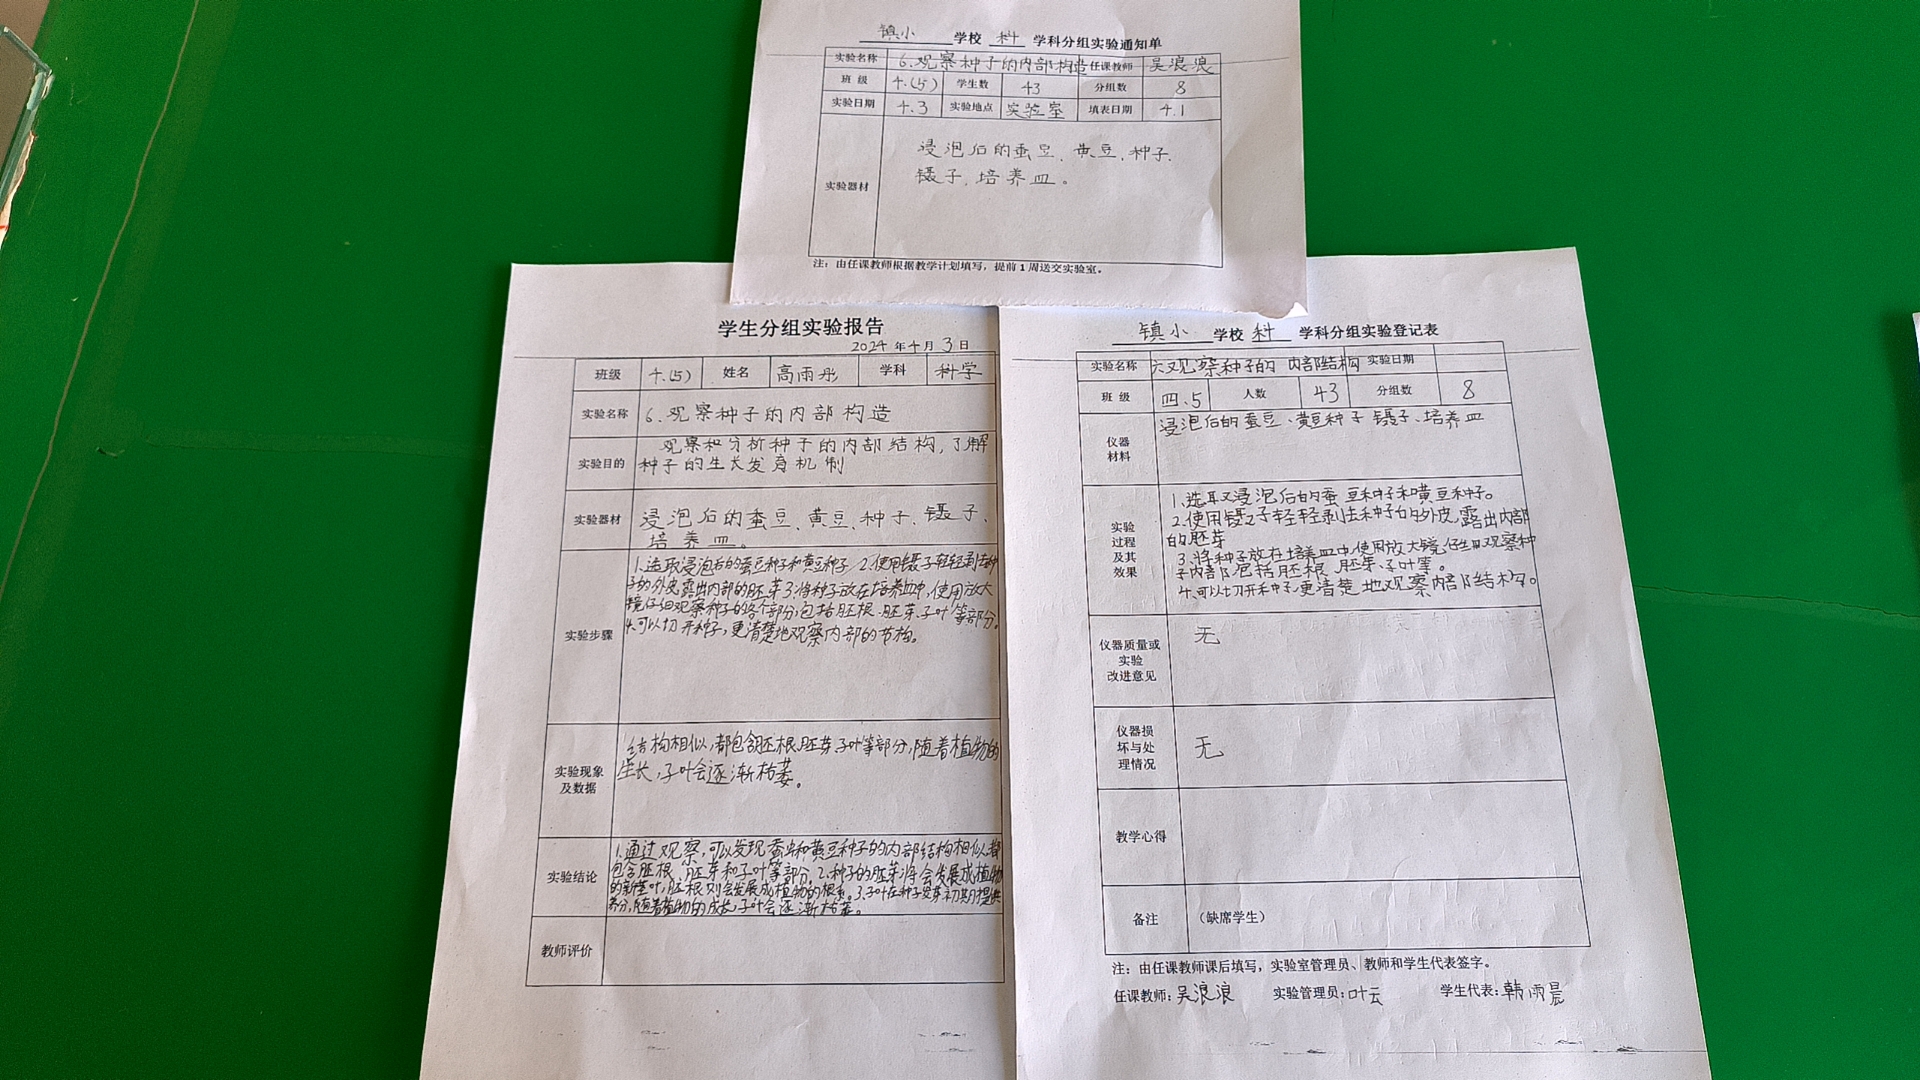 镇小 学校 科 学科分组实验通知单
实验名称 6.观察种子的内部构造 任课教师 吴浪浪
班 级 4.(5) 学生数 43 分组数 8
实验日期 4.3 实验地点 实验室 填表日期 4.1
实验器材
浸泡后的蚕豆、黄豆、种子、
镊子、培养皿。
注：由任课教师根据教学计划填写，提前1周送交实验室。
学生分组实验报告
2024 年 4 月 3 日
班级 4.(5) 姓名 高雨彤 学科 科学
实验名称 6.观察种子的内部构造
实验目的
观察和分析种子的内部结构,了解
种子的生长发育机制
实验器材
浸泡后的蚕豆、黄豆、种子、镊子、
培养皿。
实验步骤
1.选取浸泡后的蚕豆种子和黄豆种子 2.使用镊子轻轻剥去种
子的外皮,露出内部的胚芽3.将种子放在培养皿中,使用放大
镜仔细观察种子的各个部分,包括胚根、胚芽、子叶等部分。
4.可以切开种子,更清楚地观察内部的节构。
实验现象
及数据
结构相似,都包含胚根、胚芽、子叶等部分,随着植物的
生长,子叶会逐渐枯萎。
实验结论
1.通过观察,可以发现蚕豆和黄豆种子的内部结构相似,都
包含胚根、胚芽和子叶等部分。2.种子的胚芽将会发展成植物
的新茎叶,胚根则会发展成植物的根系。3.子叶在种子发芽初期提供
养分,随着植物的成长,子叶会逐渐枯萎。
教师评价
镇小 学校 科 学科分组实验登记表
实验名称 六观察种子的内部结构 实验日期
班 级 四.5 人数 43 分组数 8
仪器
材料
浸泡后的蚕豆、黄豆种子 镊子、培养皿
实验
过程
及其
效果
1.选取浸泡后的蚕豆种子和黄豆种子。
2.使用镊子轻轻剥去种子的外皮,露出内部
的胚芽
3.将种子放在培养皿中,使用放大镜仔细观察种
子内部,包括胚根、胚芽、子叶等。
4.可以切开种子,更清楚地观察内部结构。
仪器质量或
实验
改进意见
无
仪器损
坏与处
理情况
无
教学心得
备注 （缺席学生）
注：由任课教师课后填写，实验室管理员、教师和学生代表签字。
任课教师：吴浪浪 实验管理员：叶云 学生代表：韩雨晨